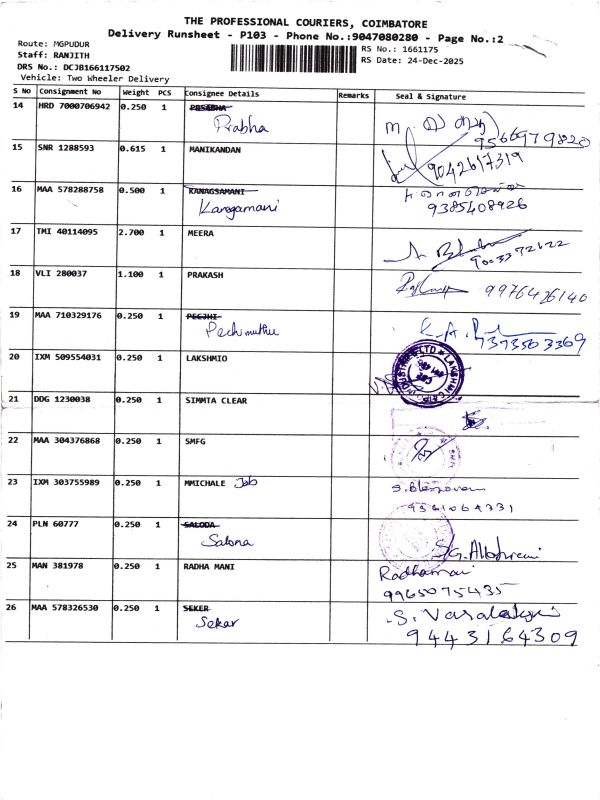 THE PROFESSIONAL COURIERS, COIMBATORE
Delivery Runsheet - P103 - Phone No.:9047080280 - Page No.:2
Route: MGPUDUR
Staff: RANJITH
DRS No.: DCJB166117502
Vehicle: Two Wheeler Delivery
RS No.: 1661175
RS Date: 24-Dec-2025
S No Consignment No Weight PCS Consignee Details Remarks Seal & Signature
14 HRD 7000706942 0.250 1
Prabha
9566979820
15 SNR 1288593 0.615 1 MANIKANDAN
9042617319
16 MAA 578288758 0.500 1 KANAGSAMANI
Kanagamani
9385408926
17 TMI 40114095 2.700 1 MEERA
9003372622
18 VLI 280037 1.100 1 PRAKASH
9976426140
19 MAA 710329176 0.250 1 PECJHI
Pechimuthu
7373503369
20 IXM 509554031 0.250 1 LAKSHMIO
21 DDG 1230038 0.250 1 SIMMTA CLEAR
22 MAA 304376868 0.250 1 SMFG
23 IXM 303755989 0.250 1 MMICHALE Job
24 PLN 60777 0.250 1 SALODA
Salona
25 MAN 381978 0.250 1 RADHA MANI
Radhamani
9965075435
26 MAA 578326530 0.250 1 SEKER
Sekar
9443164309